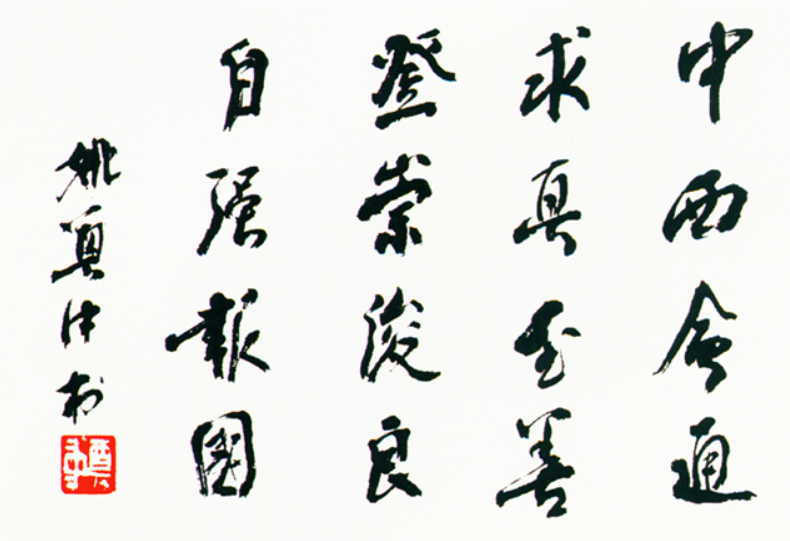 中西會通
求真至善
登崇俊良
自强報國
姚奠中
奠中